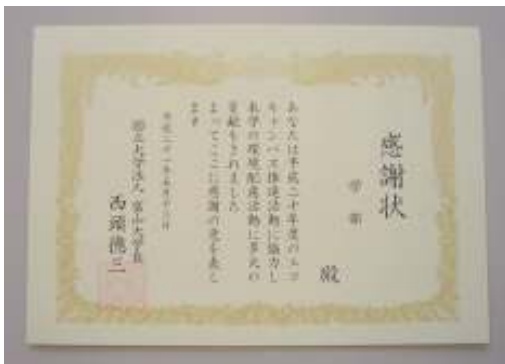 感謝状
殿
あなたは平成二十年度のエコ
キャンパス推進活動に協力し
本学の環境配慮活動に多大の
貢献をされました
よってここに感謝の意を表し
ます
国立大学法人 富山大学長
西頭德三